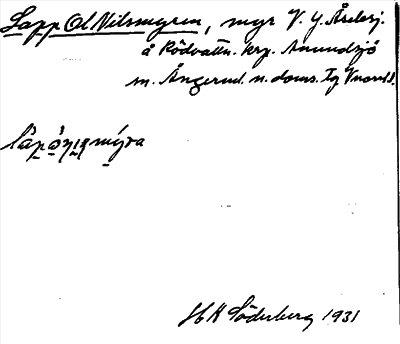 Lapp Ol Nilsmyren, myr V. G. Åselesj.
å Rödvattn. krg. Anundsjö
m. Ångerml. n. doms. Tg Vnorrl.
H K Söderberg 1931